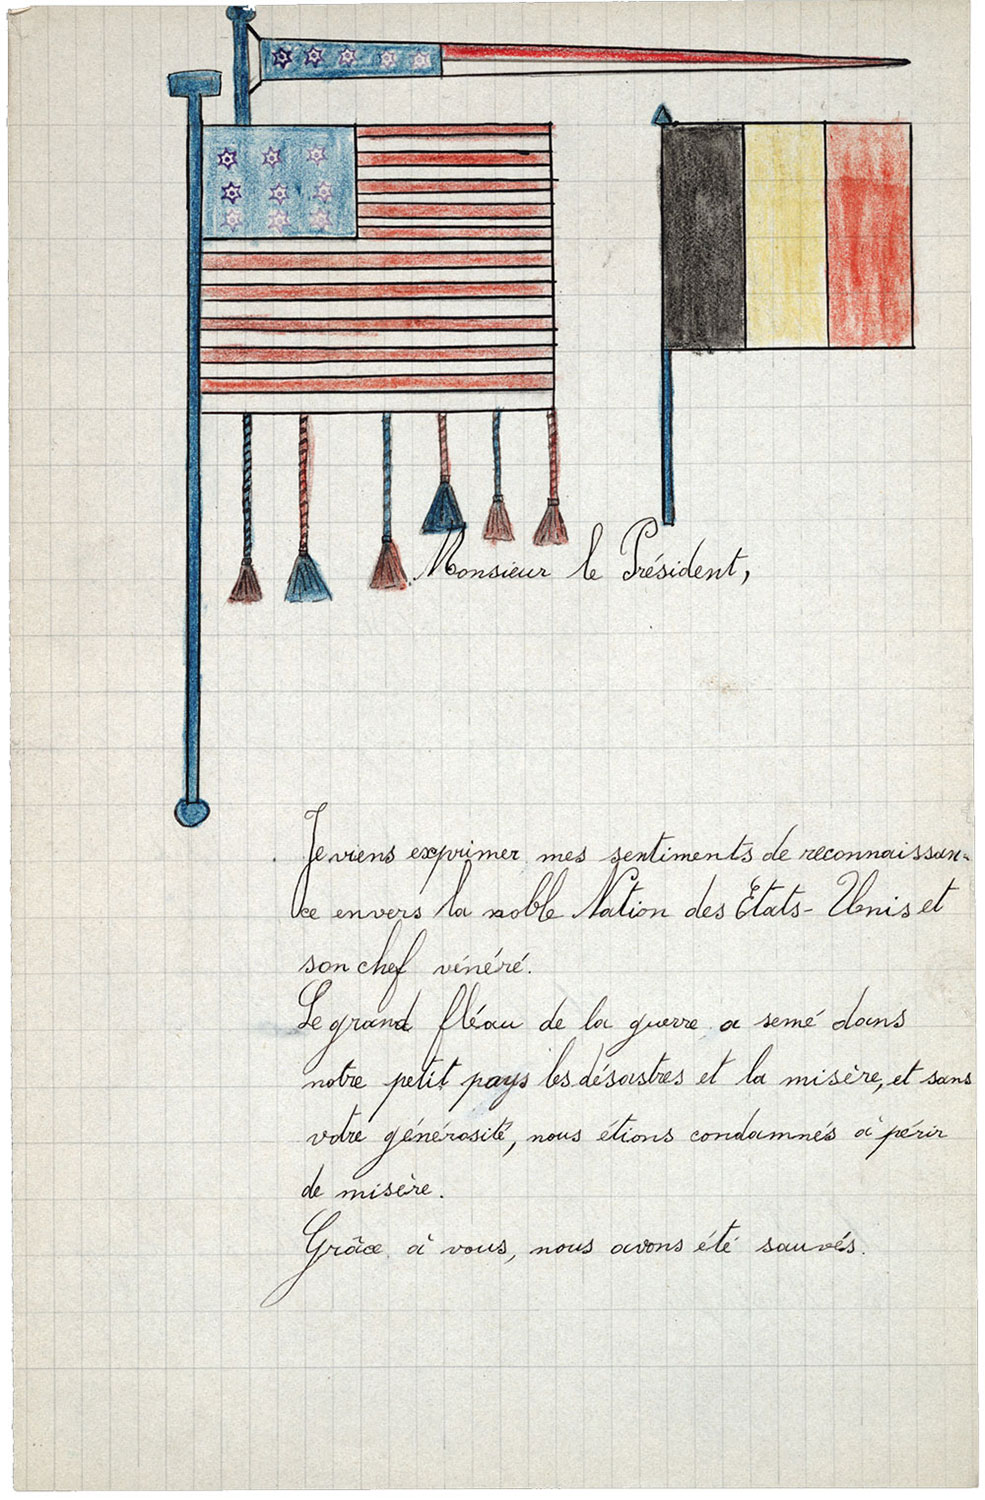 Monsieur le Président,
Je viens exprimer mes sentiments de reconnaissan-
ce envers la noble Nation des Etats-Unis et
son chef vénéré.
Le grand fléau de la guerre a semé dans
notre petit pays les désastres et la misère, et sans
votre générosité, nous étions condamnés à périr
de misère.
Grâce à vous, nous avons été sauvés.